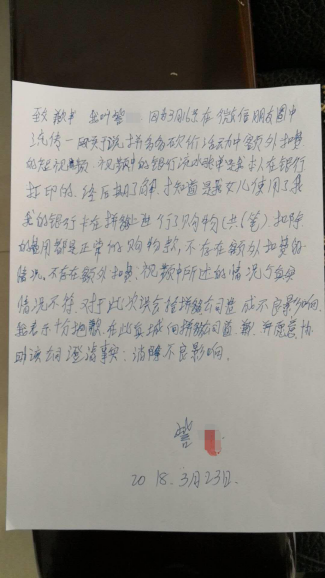 致歉书
因好朋友在微信朋友圈中
上传一段关于说拼多多砍价活动中额外扣费
的短视频，视频中的银行流水账单是我本人在银行
打印的，经后期了解，才知道是我女儿使用了我
我的银行卡在拼多多上进行了购物(共 笔)扣除
的费用都是正常的购物款，不存在额外扣费的
情况。不存在额外扣费、视频中所述的情况与真实
情况不符，对于此次误会给拼多多公司造成不良影响，
我表示十分抱歉，在此真诚向拼多多公司道歉，并愿意协
助该公司澄清事实，消除不良影响。
2018.3月23日.